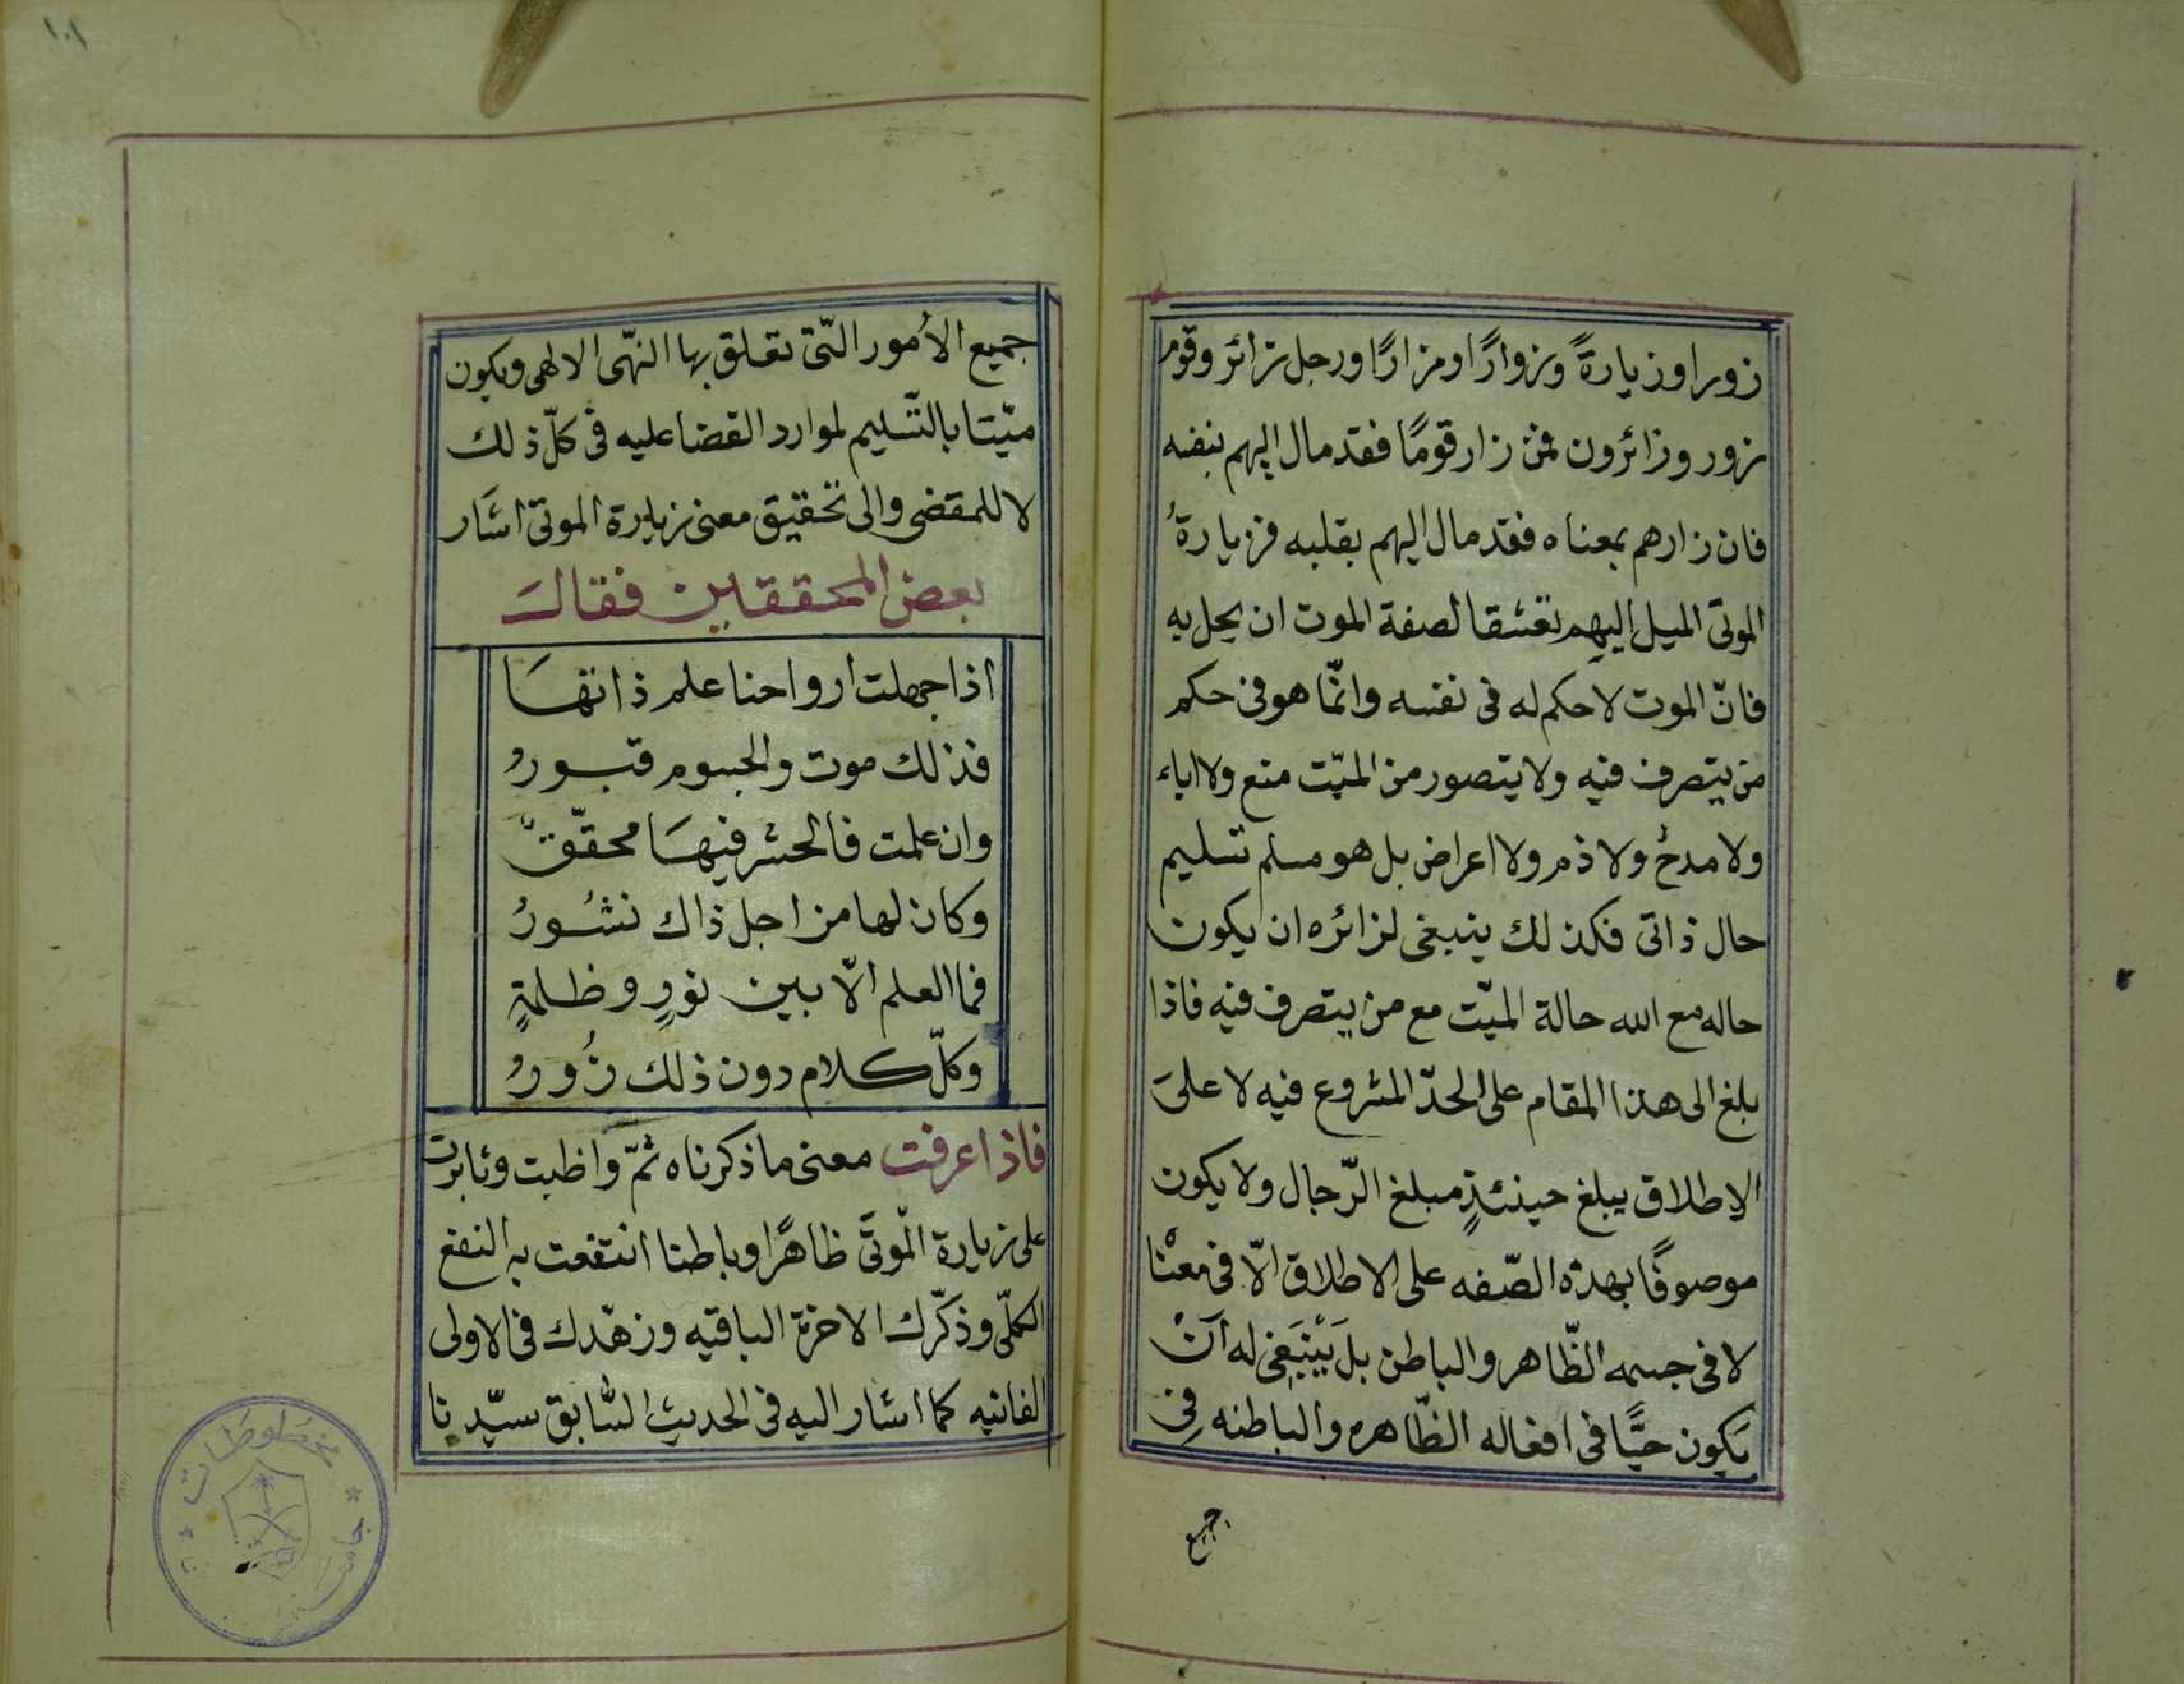 زورا وزيارةً وزوارًا ومزارًا ورجل زائر وقوم
زور وزائرون فمن زار قومًا فقد مال اليهم بنفسه
فان زارهم بمعناه فقد مال اليهم بقلبه فزيارةُ
الموتى الميل اليهم تعشقا لصفة الموت ان يحل به
فانّ الموت لا حكم له فى نفسه وانّما هو فى حكم
من يتصرف فيه ولا يتصور من الميّت منع ولا اباء
ولا مدحٌ ولا ذم ولا اعراض بل هو مسلم تسليم
حال ذاتى فكذلك ينبغى لزائره ان يكون
حاله مع الله حالة الميّت مع من يتصرف فيه فاذا
بلغ الى هذا المقام على الحدّ المشروع فيه لا علىَ
الاطلاق يبلغ حينئذٍ مبلغ الرّجال ولا يكون
موصوفًا بهذه الصّفه على الاطلاق الّا فى معْنا
لا فى جسمه الظّاهر والباطن بل يَنْبَغى له اَنْ
يَكون حيًّا فى افعاله الظّاهره والباطنه فِى
جميع
١٠١
جميع الأمور الّتى تعلق بها النّهى الالهى ويكون
ميّتا بالتّسليم لموارد القضا عليه فى كلّ ذلك
لا للمقضى والى تحقيق معنى زيارة الموتى اشار
بعض المحققين فقالَ
اذا جهلت ارواحنا علم ذاتهَا
فذلك موت والجسوم قبورُ
وان علمت فالحشر فيهَا محقّقٌ
وكان لها من اجل ذاك نشُورُ
فما العلم الّا بين نورٍ وظلمةٍ
وكلّ كلام دون ذلك زُورُ
فاذا عرفت معنى ما ذكرناه ثمّ واظبت وثابرت
على زيارة الموتَى ظاهرًا وباطنا انتفعت به النفع
الكلّى وذكّرك الاخرة الباقيه وزهّدك فى الاولى
الفانيه كما اشار اليه فى الحديث السّابق سيّدنا
مخطوطات